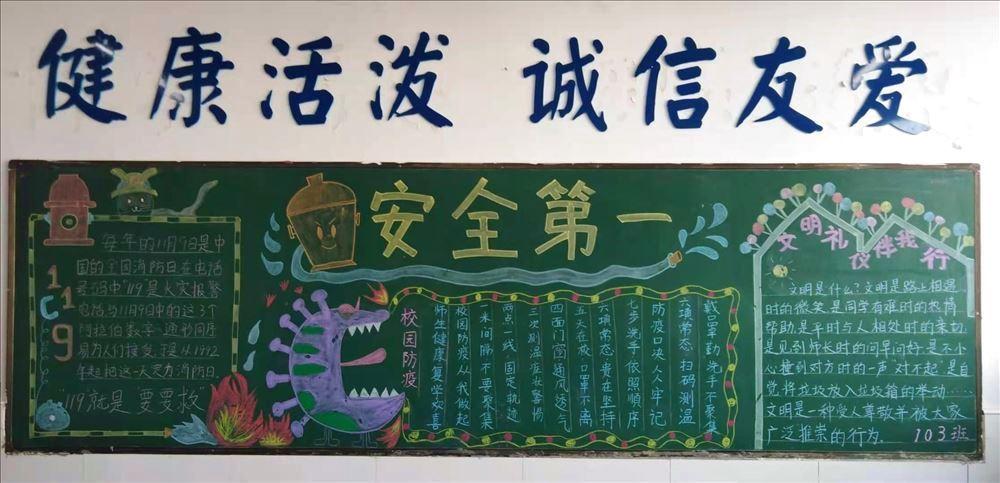 健康活泼 诚信友爱
安全第一
119
每年的11月9日是中
国的全国消防日在电话
号码中"119是火灾报警
电话与11月9日中的这3个
阿拉伯数字 同序
易为人们接受,提从1992
年起把这一天定为消防日.
"119就是"要要救"
校园防疫
戴罩勤洗手不聚集
六项常态扫码测温
防疫口决人人牢记
七步洗手依照顺序
六项常态贵在坚持
五大在校口罩不离
四面门窗通风透气
三次测温症状警惕
两点一线固定轨迹
一米间隔不要聚集
校园防疫从我做起
师生健康复学欢喜
文明礼仪伴我行
文明是什么?文明是路上相遇
时的微笑,是同学有难时的热情
帮助,是平时与人相处时的亲切,
是见到师长时的问早问好,是不小
心撞到对方时的一声"对不起",是自
觉将垃圾放入垃圾箱的举动……
文明是一种受人尊敬并被大家
广泛推崇的行为.
103班